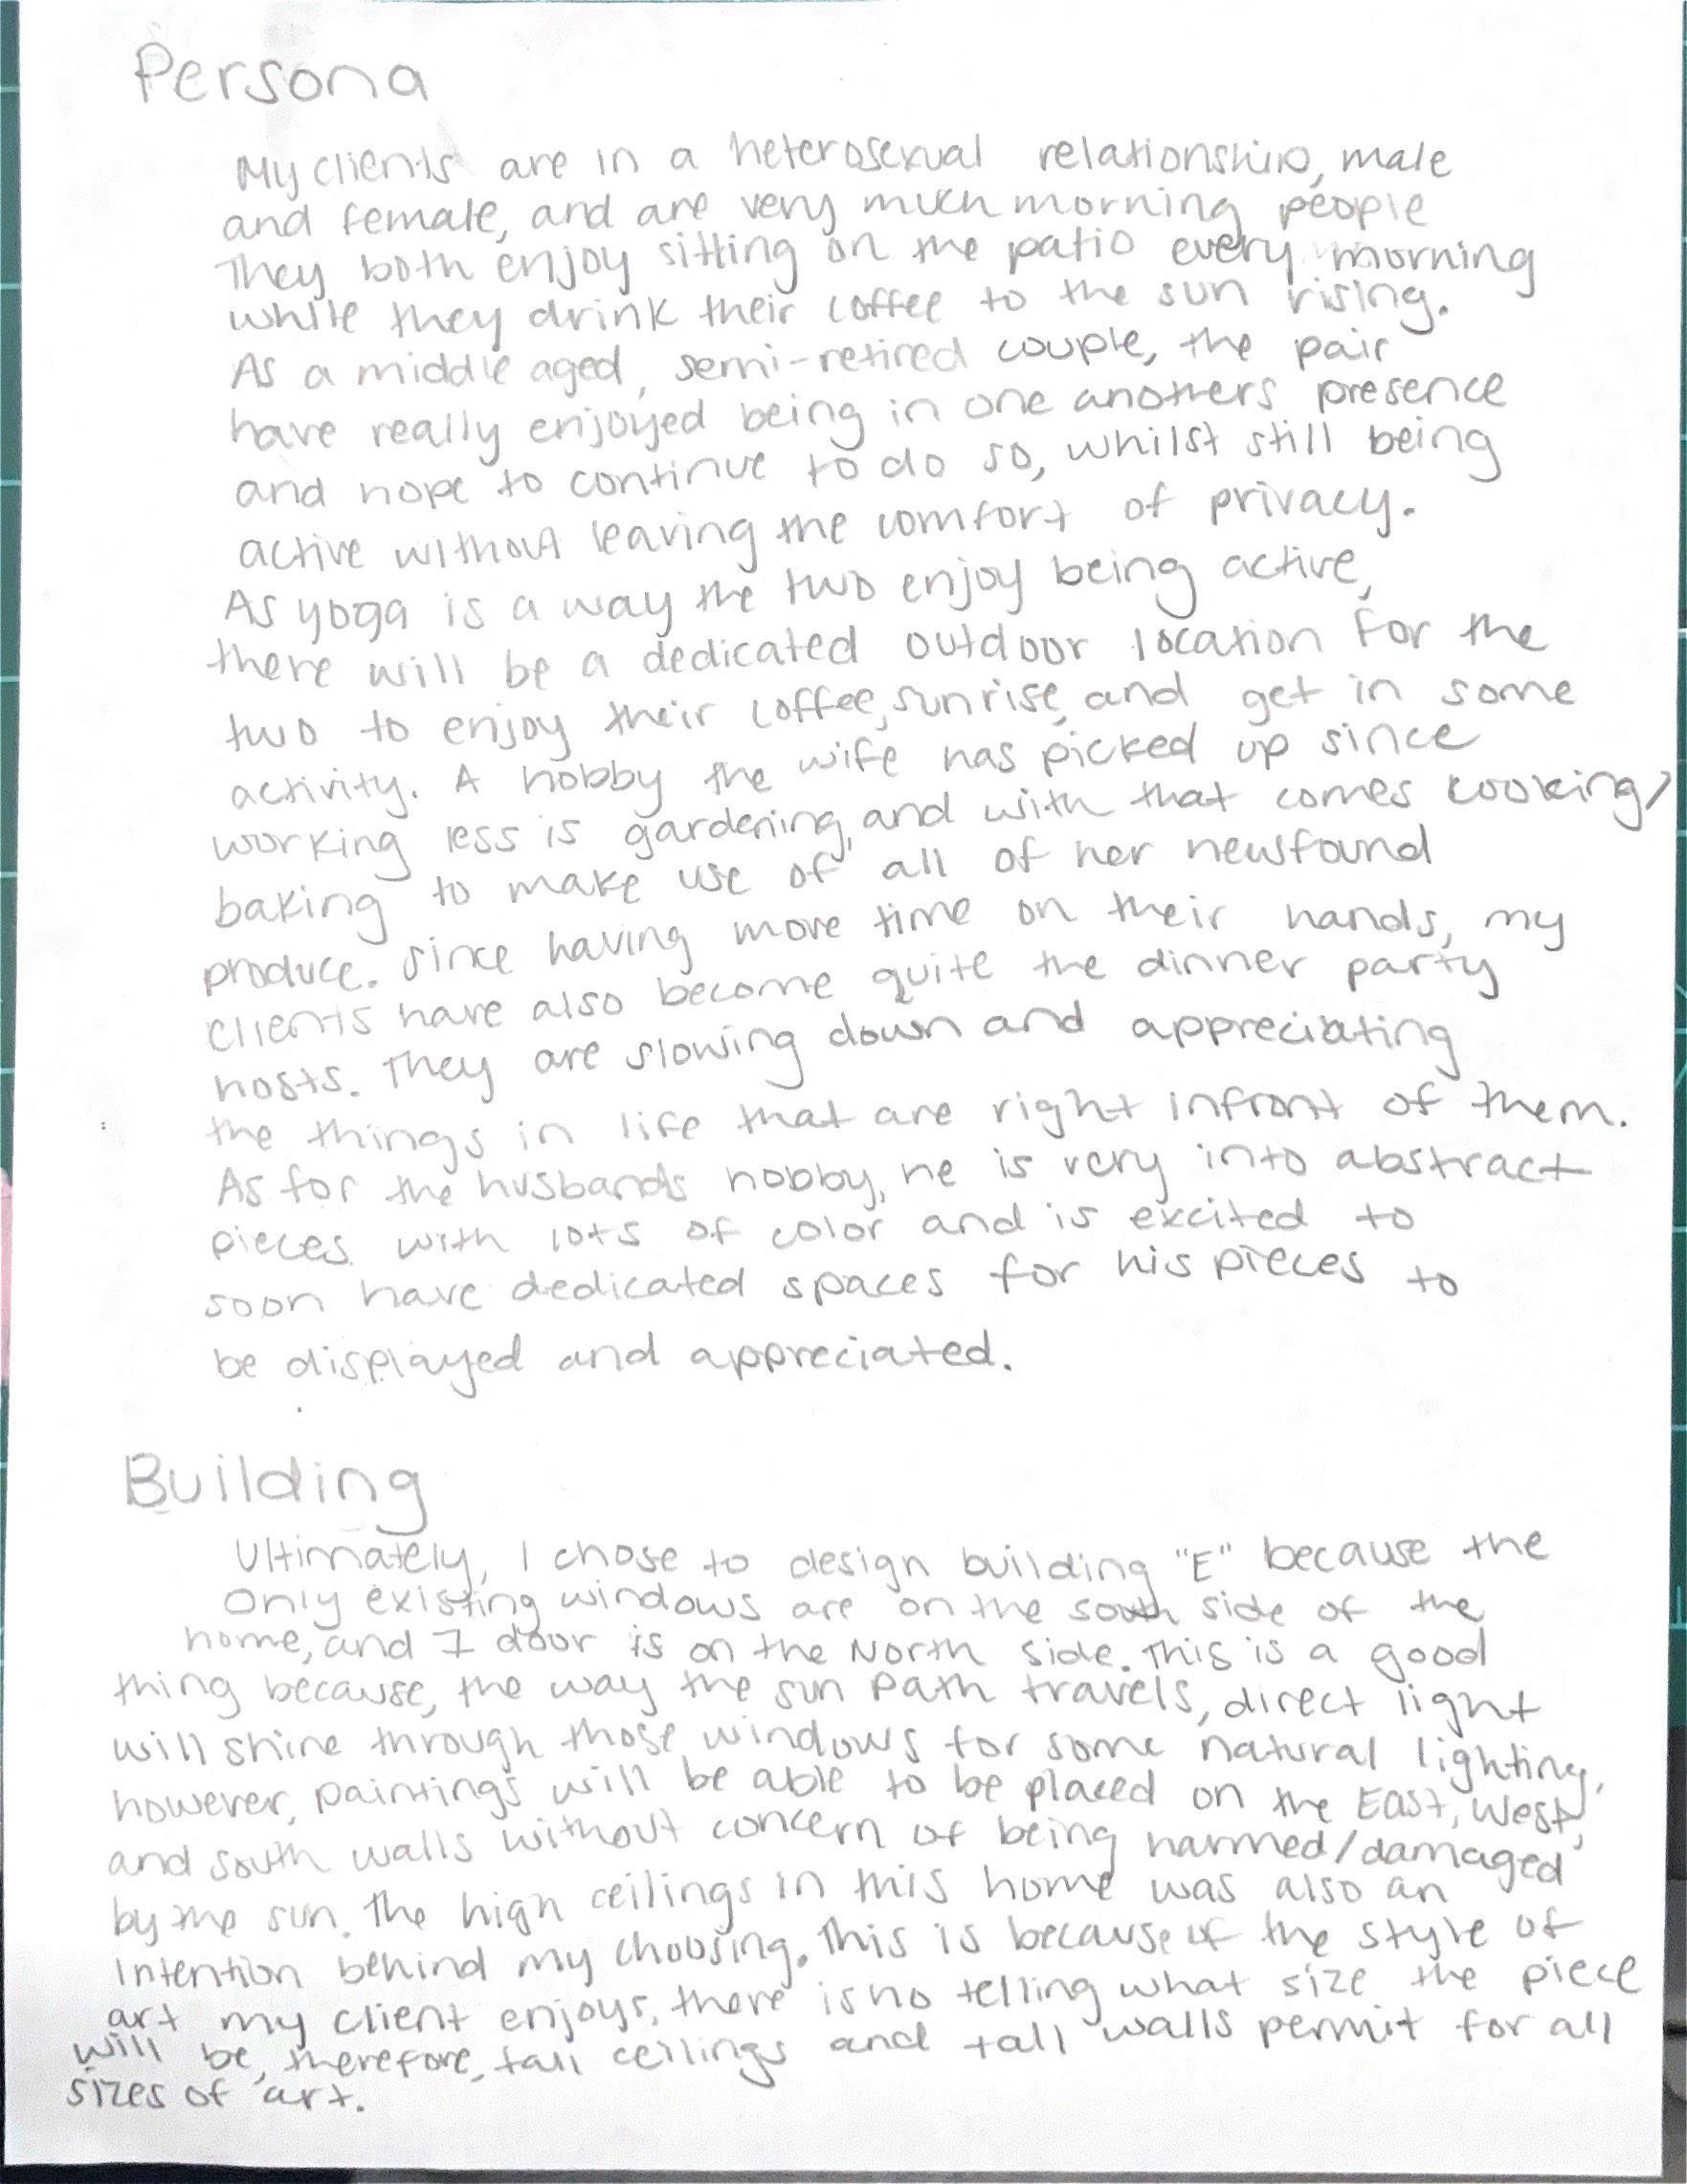 Persona
My clients are in a heterosexual relationship, male
and female, and are very much morning people
They both enjoy sitting on the patio every morning
while they drink their coffee to the sun rising.
As a middle aged, semi-retired couple, the pair
have really enjoyed being in one anothers presence
and hope to continue to do so, whilst still being
active without leaving the comfort of privacy.
As yoga is a way the two enjoy being active,
there will be a dedicated outdoor location for the
two to enjoy their coffee, sunrise, and get in some
activity. A hobby the wife has picked up since
working less is gardening, and with that comes cooking/
baking to make use of all of her newfound
produce. Since having more time on their hands, my
clients have also become quite the dinner party
hosts. They are slowing down and appreciating
the things in life that are right infront of them.
As for the husbands hobby, he is very into abstract
pieces with lots of color and is excited to
soon have dedicated spaces for his pieces to
be displayed and appreciated.
Building
Ultimately, I chose to design building "E" because the
only existing windows are on the south side of the
home, and 1 door is on the North side. This is a good
thing because, the way the sun path travels, direct light
will shine through those windows for some natural lighting,
however, paintings will be able to be placed on the East, West,
and south walls without concern of being harmed/damaged
by the sun. The high ceilings in this home was also an
intention behind my choosing. This is because of the style of
art my client enjoys, there is no telling what size the piece
will be, therefore, tall ceilings and tall walls permit for all
sizes of art.